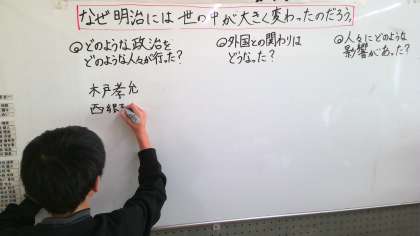 なぜ明治には世の中が大きく変わったのだろう。
どのような政治を
どのような人々が行った?
外国との関わりは
どうなった?
人々にどのような
影響があった?
木戸孝允
西郷